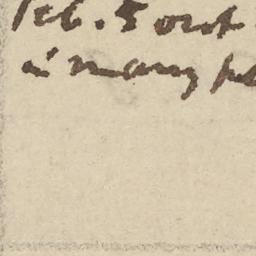 Feb. 5 out
in many pl